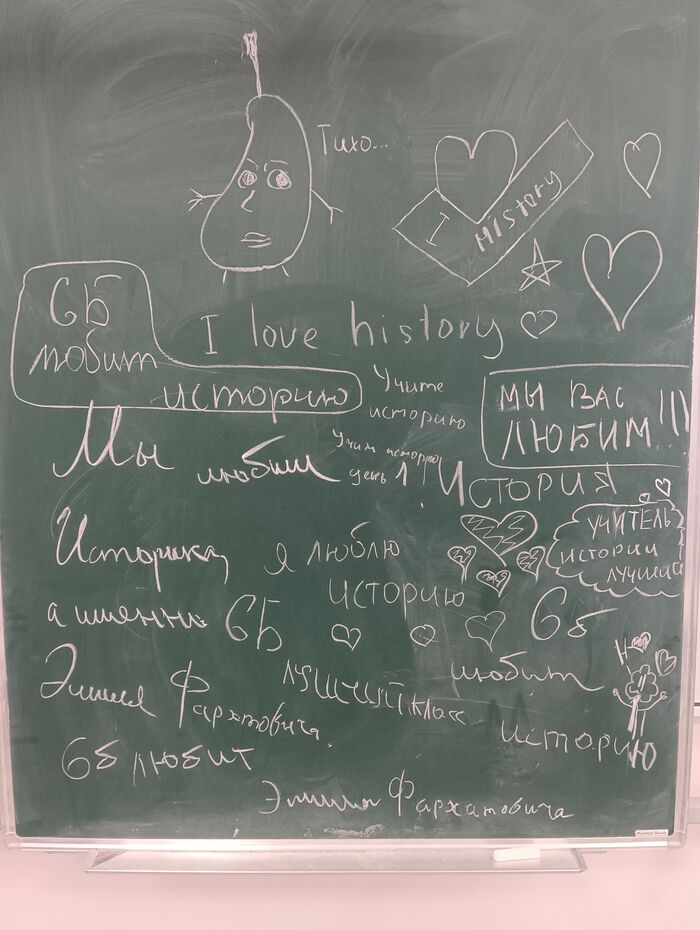 Тихо...
I History
6Б
любит
историю
I love history
Учите
историю
МЫ ВАС
ЛЮБИМ!!!
Мы любим
Учим историю
день 1
ИСТОРИЯ
Историка,
я люблю
историю
УЧИТЕЛЬ
истории
лучший
а именно 6Б
6б
любит
историю
Эмиля Фархатовича
лучший класс
6б любит
Эмиля Фархатовича